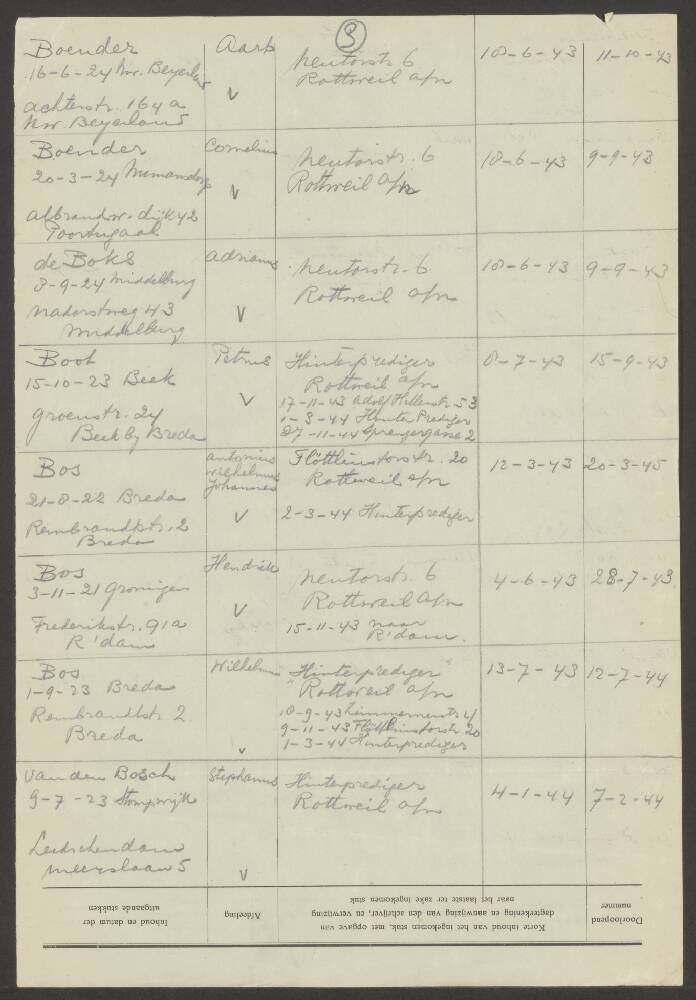 3
Boender Aart Neutorstr. 6 10-6-43 11-10-43
16-6-24 Nw. Beyerland Rottweil a/n
V
Achterstr. 164a
Nw. Beyerland
Boender Cornelius Neutorstr. 6 10-6-43 9-9-43
20-3-24 Rottweil a/n
V
albrandsw. dijk 42
Poortugaal
de Boks Adrianus Neutorstr. 6 10-6-43 9-9-43
8-9-24 Middelburg Rottweil a/n
Nadorstweg 43 V
Middelburg
Boot Petrus Hinterprediger 8-7-43 15-9-43
15-10-23 Beek Rottweil a/n
V 17-11-43 Adolf Hitlerstr. 53
Groenstr. 24 1-3-44 Hinter Prediger
Beek by Breda 27-11-44 Sprengergasse 2
Bos Antonius Wilhelmus Johannes Flöttlinstorstr. 20 12-3-43 20-3-45
21-8-22 Breda Rottweil a/n
Rembrandtstr. 2 V 2-3-44 Hinterprediger
Breda
Bos Hendrik Neutorstr. 6 4-6-43 28-7-43
3-11-21 Groningen Rottweil a/n
V
Frederikstr. 91a 15-11-43 naar
R'dam R'dam.
Bos Wilhelm Hinterprediger 13-7-43 12-7-44
1-9-23 Breda Rottweil a/n
Rembrandtstr. 2 10-9-43
Breda 9-11-43 Flöttlinstorstr. 20
V 1-3-44 Hinterprediger
van den Bosch Stephanus Hinterprediger 4-1-44 7-2-44
9-7-23 Stompwijk Rottweil a/n
Leidschendam
meerslaan 5 V
Doorloopend
nummer
Korte inhoud van het ingekomen stuk, met opgave van
dagteekening en aanwijzing van den schrijver, en verwijzing
naar het laatste ter zake ingekomen stuk
Afdeeling
Inhoud en datum der
uitgaande stukken